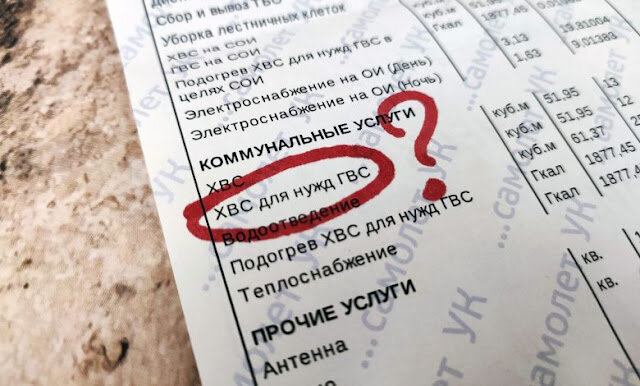 Сбор и вывоз ТБО
Уборка лестничных клеток
ХВС на СОИ
ГВС на СОИ
Подогрев ХВС для нужд ГВС в
целях СОИ
Электроснабжение на ОИ (День)
Электроснабжение на ОИ (Ночь)
КОММУНАЛЬНЫЕ УСЛУГИ ?
ХВС куб.м 51,95 13
ХВС для нужд ГВС куб.м 51,95 12
Водоотведение куб.м 61,37 25
Подогрев ХВС для нужд ГВС Гкал 1877,45
Теплоснабжение Гкал 1877,45
ПРОЧИЕ УСЛУГИ
Антенна кв.
кв.
3.13
1.63
9.01383
куб.м
Гкал
1877,45
...самолет УК
...самолет УК
...самолет УК
...самолет УК